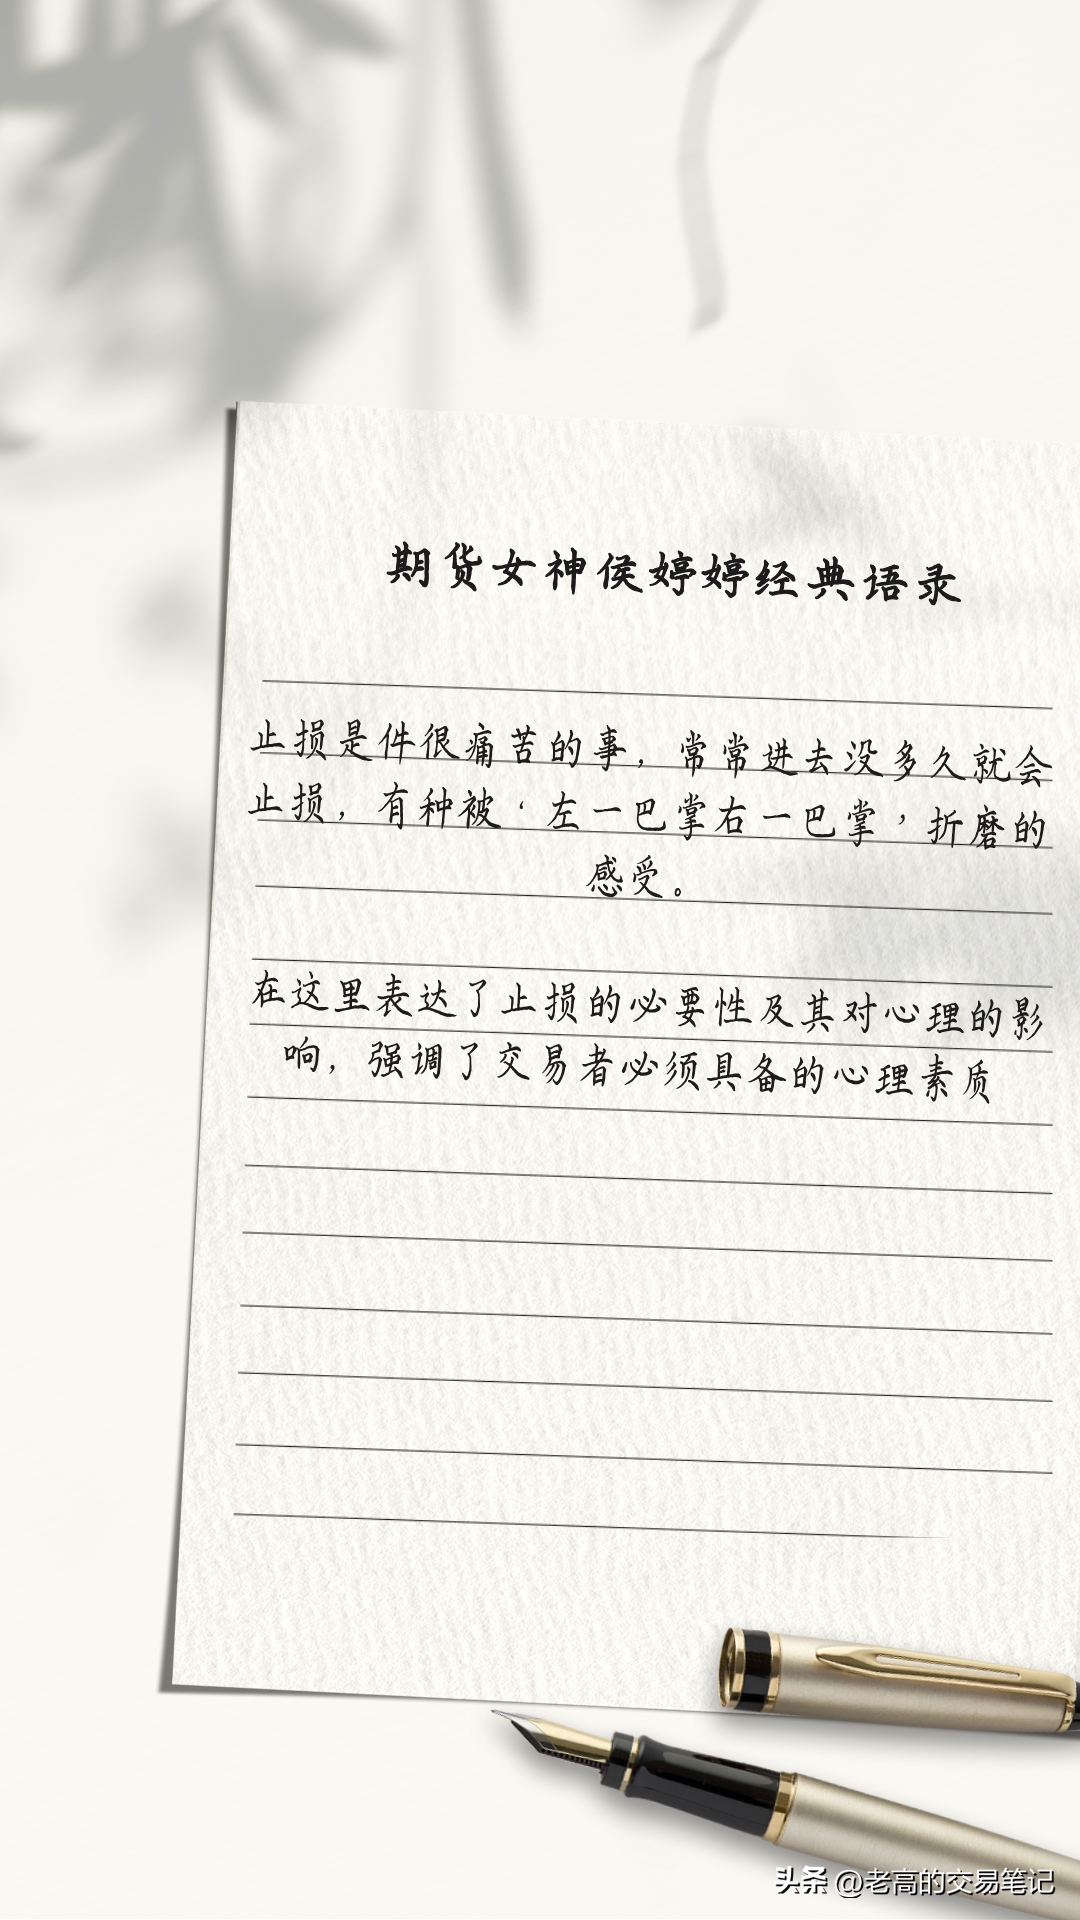 期货女神侯婷婷经典语录
止损是件很痛苦的事，常常进去没多久就会
止损，有种被‘左一巴掌右一巴掌’折磨的
感受。
在这里表达了止损的必要性及其对心理的影
响，强调了交易者必须具备的心理素质
头条 @老高的交易笔记